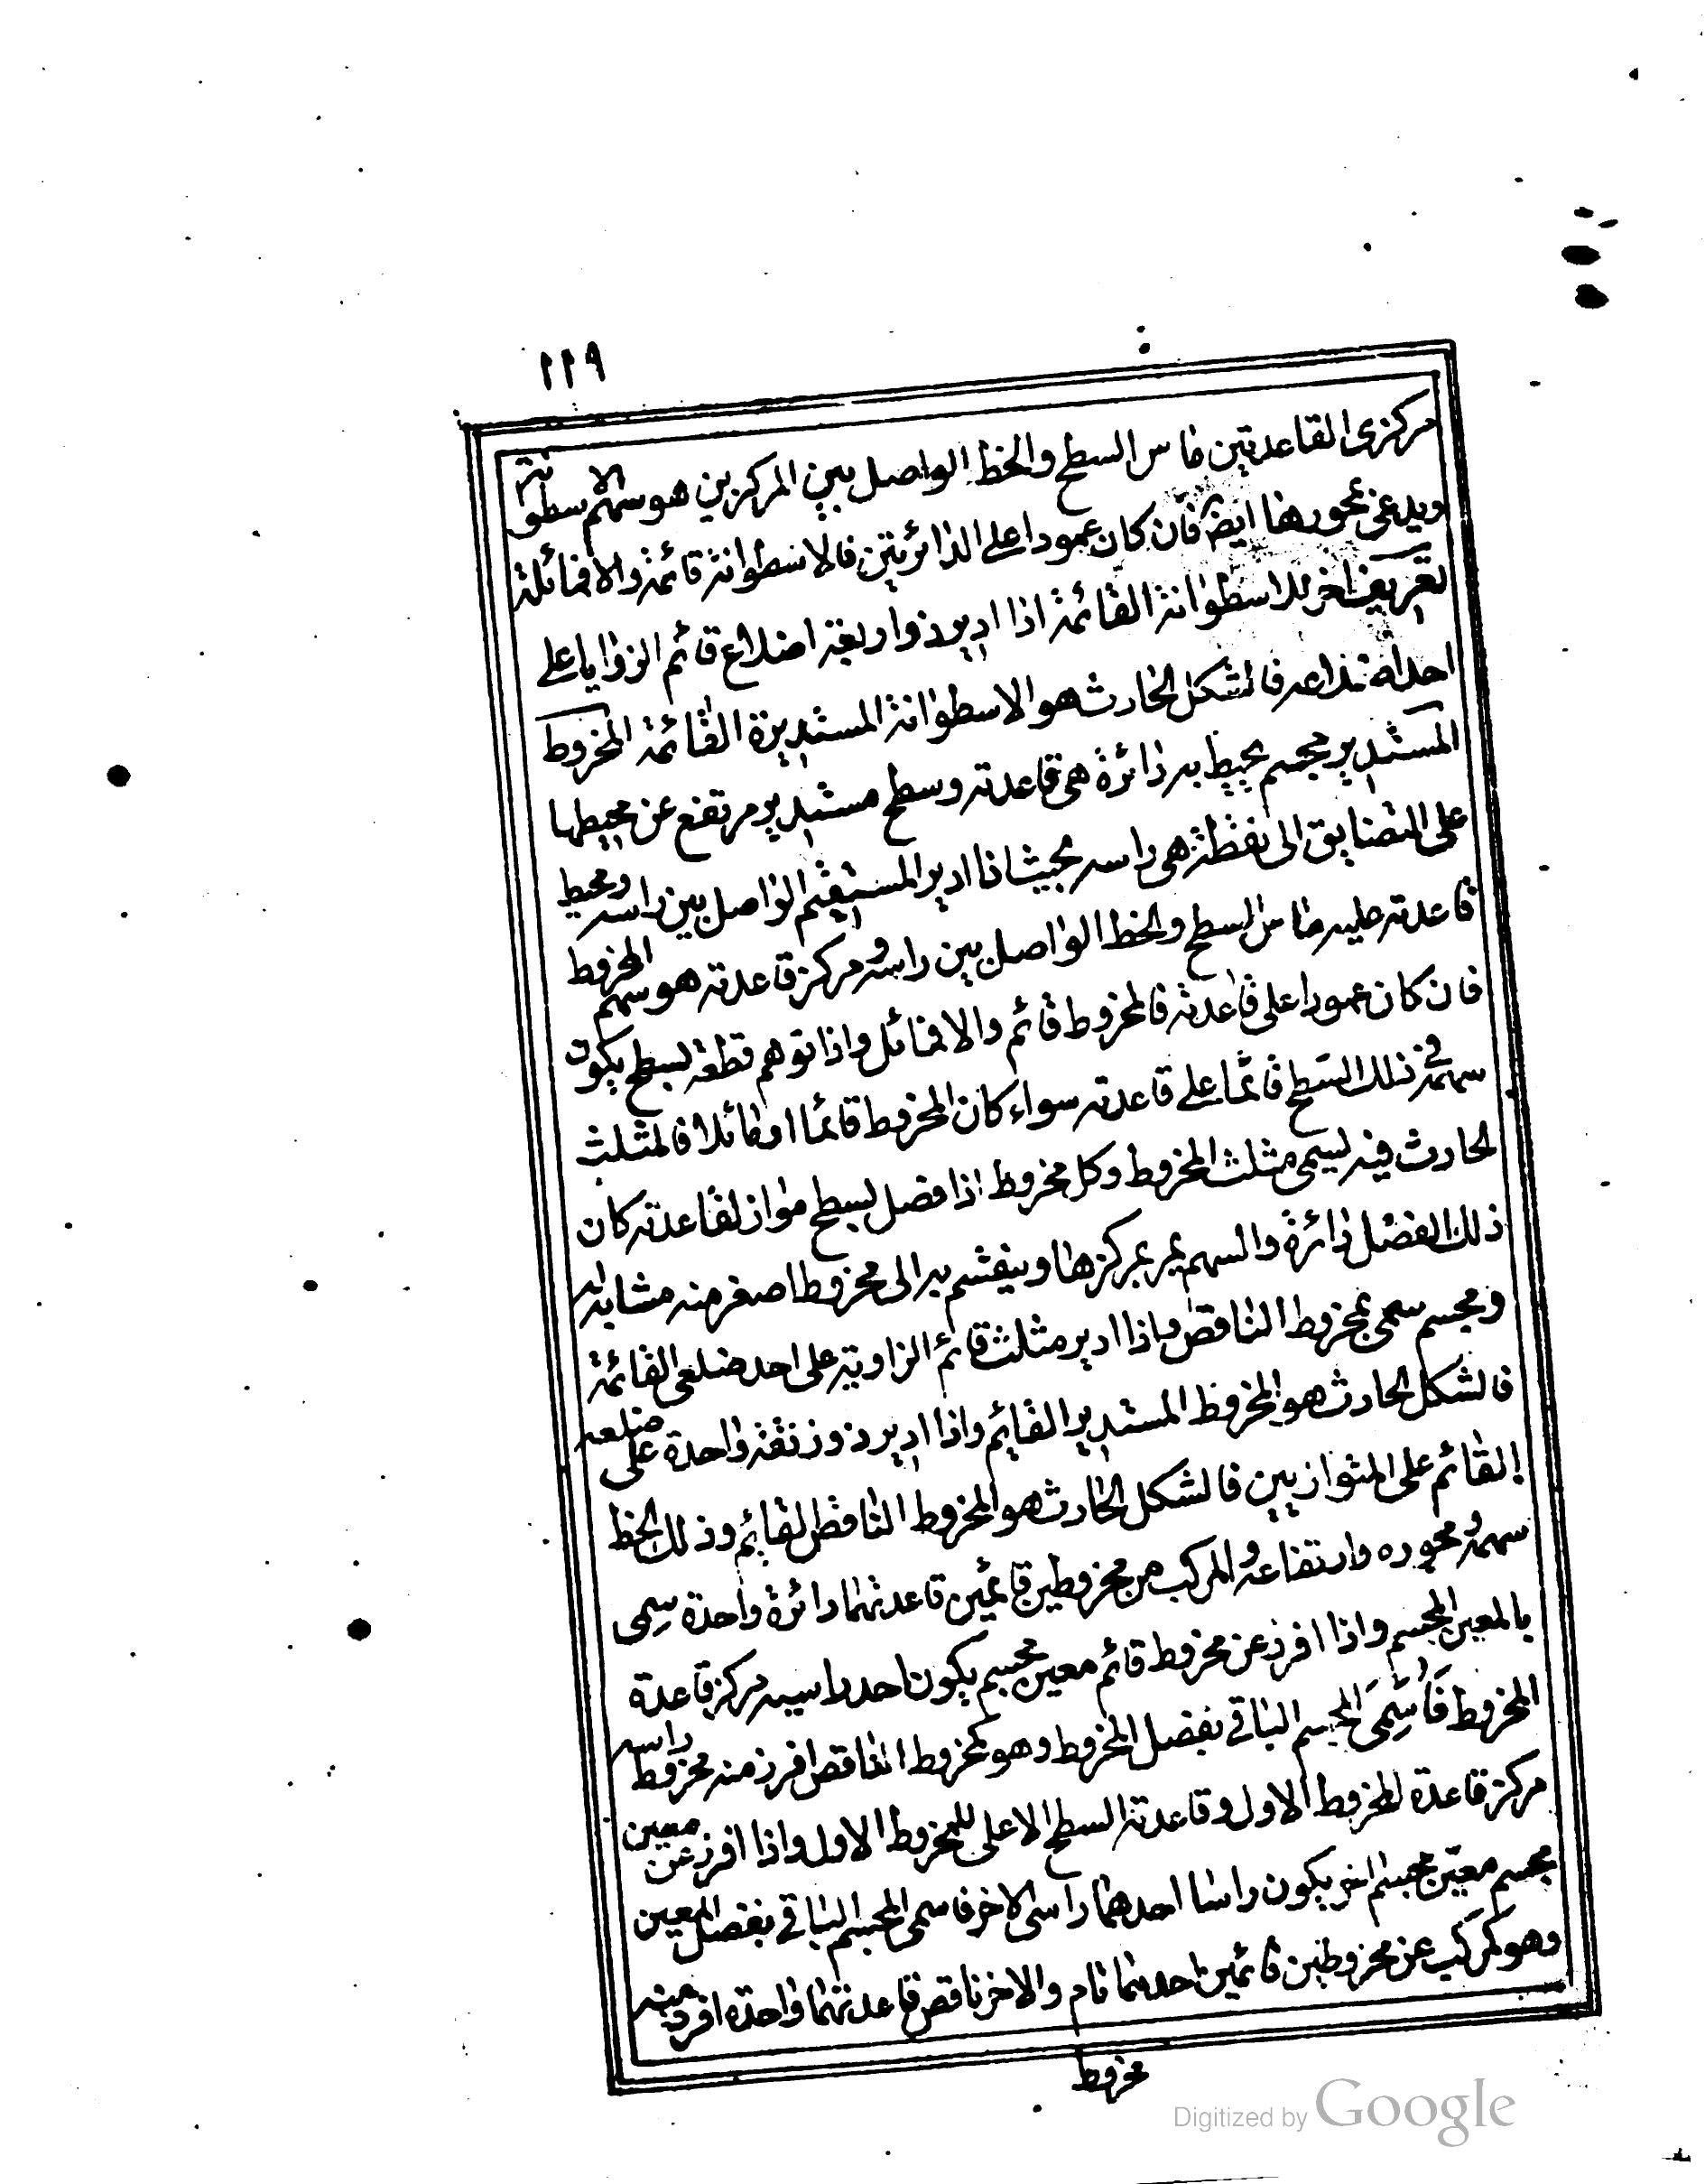 ١١٩
مركزى القاعدتين ماس السطح والخط الواصل بين المركزين هو سهم الاسطوانة
ويدعى محورها ايضا فان كان عمودا على الدائرتين فالاسطوانة قائمة والا فمائلة
تعريف اخر للاسطوانة القائمة اذا ادير ذو اربعة اضلاع قائم الزوايا على
احد اضلاعه فالشكل الحادث هو الاسطوانة المستديرة القائمة المخروط
المستدير مجسم يحيط به دائرة هى قاعدته وسطح مستدير مرتفع عن محيطها
على التضايق الى نقطة هى راسه بحيث اذا ادير المستقيم الواصل بين راسه ومحيط
قاعدته عليه ماس السطح والخط الواصل بين راسه ومركز قاعدته هو سهم المخروط
فان كان عمودا على قاعدته فالمخروط قائم والا فمائل واذا توهم قطعه بسطح يكون
سهمه فى ذلك السطح قائما على قاعدته سواء كان المخروط قائما او مائلا فالمثلث
الحادث فيه يسمى مثلث المخروط وكل مخروط اذا فصل بسطح مواز لقاعدته كان
ذلك الفصل دائرة والسهم يمر بمركزها وينقسم به الى مخروط اصغر منه مشابه له
ومجسم سمى بمخروط الناقص واذا ادير مثلث قائم الزاوية على احد ضلعى القائمة
فالشكل الحادث هو المخروط المستدير القايم واذا ادير ذو زنقة واحدة على ضلعه
القائم على المتوازيين فالشكل الحادث هو المخروط الناقص القايم وذلك الخط
سهمه ومحوره وارتفاعه والمركب من مخروطين قائمين قاعدتهما دائرة واحدة سمى
بالمعين المجسم واذا افرز عن مخروط قائم معين مجسم يكون احد راسيه مركز قاعدة
المخروط فاسمى المجسم الباقى بفضل المخروط وهو كمخروط الناقص افرز منه مخروط راسه
مركز قاعدة المخروط الاول وقاعدته السطح الاعلى للمخروط الاول واذا افرز عن معين
مجسم معين مجسم اخر يكون راسا احدهما راسى الاخر فاسمى المجسم الباقى بفضل المعين
وهو كمركب عن مخروطين قائمين احدهما تام والاخر ناقص قاعدتهما واحدة افرد منه
مخروط
Digitized by Google